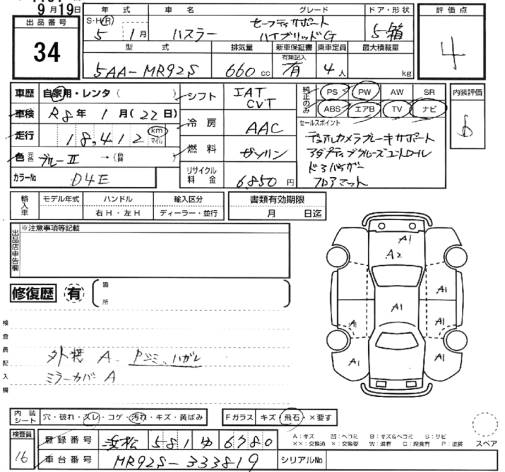 9月19日
出品番号
34
年式 車名 グレード ドア・形状
S・H(R) 5年 1月 ハスラー セーフティサポート ハイブリッドG 5箱
型式 排気量 新車保証書 乗車定員 最大積載量
5AA-MR92S 660cc 有 4人 kg
記録簿入
評価点
4
車歴 自家用・レンタ ( )
車検 R8年 1月 (22日)
走行 18,412 km マイル
色 元色 ブルーII → (替 )
カラーNo D4E
シフト IAT CVT
冷房 AAC
燃料 ガソリン
リサイクル料金 6850円
純正のみ
PS PW AW SR
ABS エアB TV ナビ
内装評価
セールスポイント
デュアルカメラブレーキサポート
アダプティブクルーズコントロール
ドアバイザー
フロアマット
輸入車 モデル年式 ハンドル 輸入区分
右H・左H ディーラー・並行
書類有効期限
月 日迄
出品店申告欄
※注意事項等記載
修復歴 有 箇所
検査員記入欄
外装 A Pジミ、ハガレ
ミラーカバーA
A1
A2
A1
A1
A1
A1
A1
内装シート 穴・破れ・スレ・コゲ・汚れ・キズ・黄ばみ
Fガラス キズ・飛石・×要す
検査員
16
登録番号 浜松 581 ゆ 6780
車台番号 MR92S-333819
シリアルNo
スペア